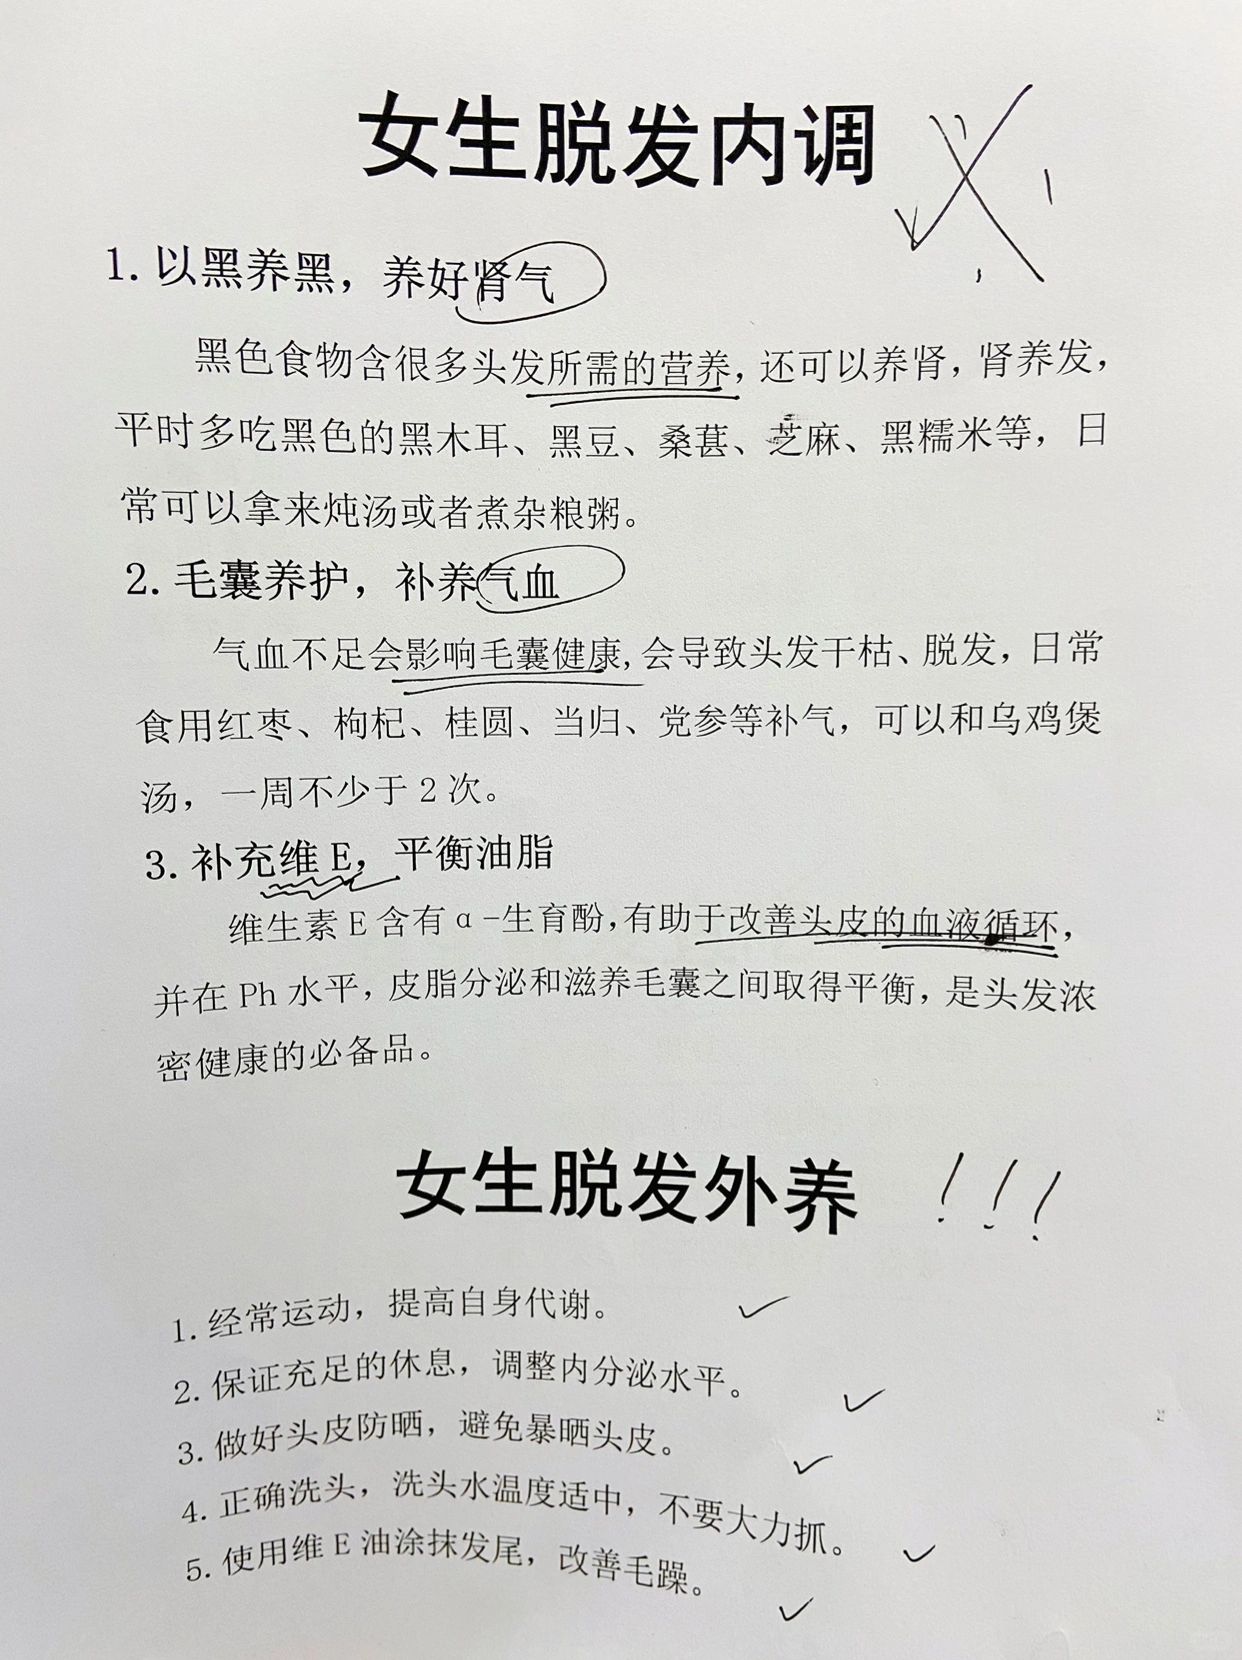 女生脱发内调
1. 以黑养黑，养好肾气
黑色食物含很多头发所需的营养，还可以养肾，肾养发，
平时多吃黑色的黑木耳、黑豆、桑葚、芝麻、黑糯米等，日
常可以拿来炖汤或者煮杂粮粥。
2. 毛囊养护，补养气血
气血不足会影响毛囊健康，会导致头发干枯、脱发，日常
食用红枣、枸杞、桂圆、当归、党参等补气，可以和乌鸡煲
汤，一周不少于 2 次。
3. 补充维 E，平衡油脂
维生素 E 含有 α-生育酚，有助于改善头皮的血液循环，
并在 Ph 水平，皮脂分泌和滋养毛囊之间取得平衡，是头发浓
密健康的必备品。
女生脱发外养 ！！！
1. 经常运动，提高自身代谢。
2. 保证充足的休息，调整内分泌水平。
3. 做好头皮防晒，避免暴晒头皮。
4. 正确洗头，洗头水温度适中，不要大力抓。
5. 使用维 E 油涂抹发尾，改善毛躁。